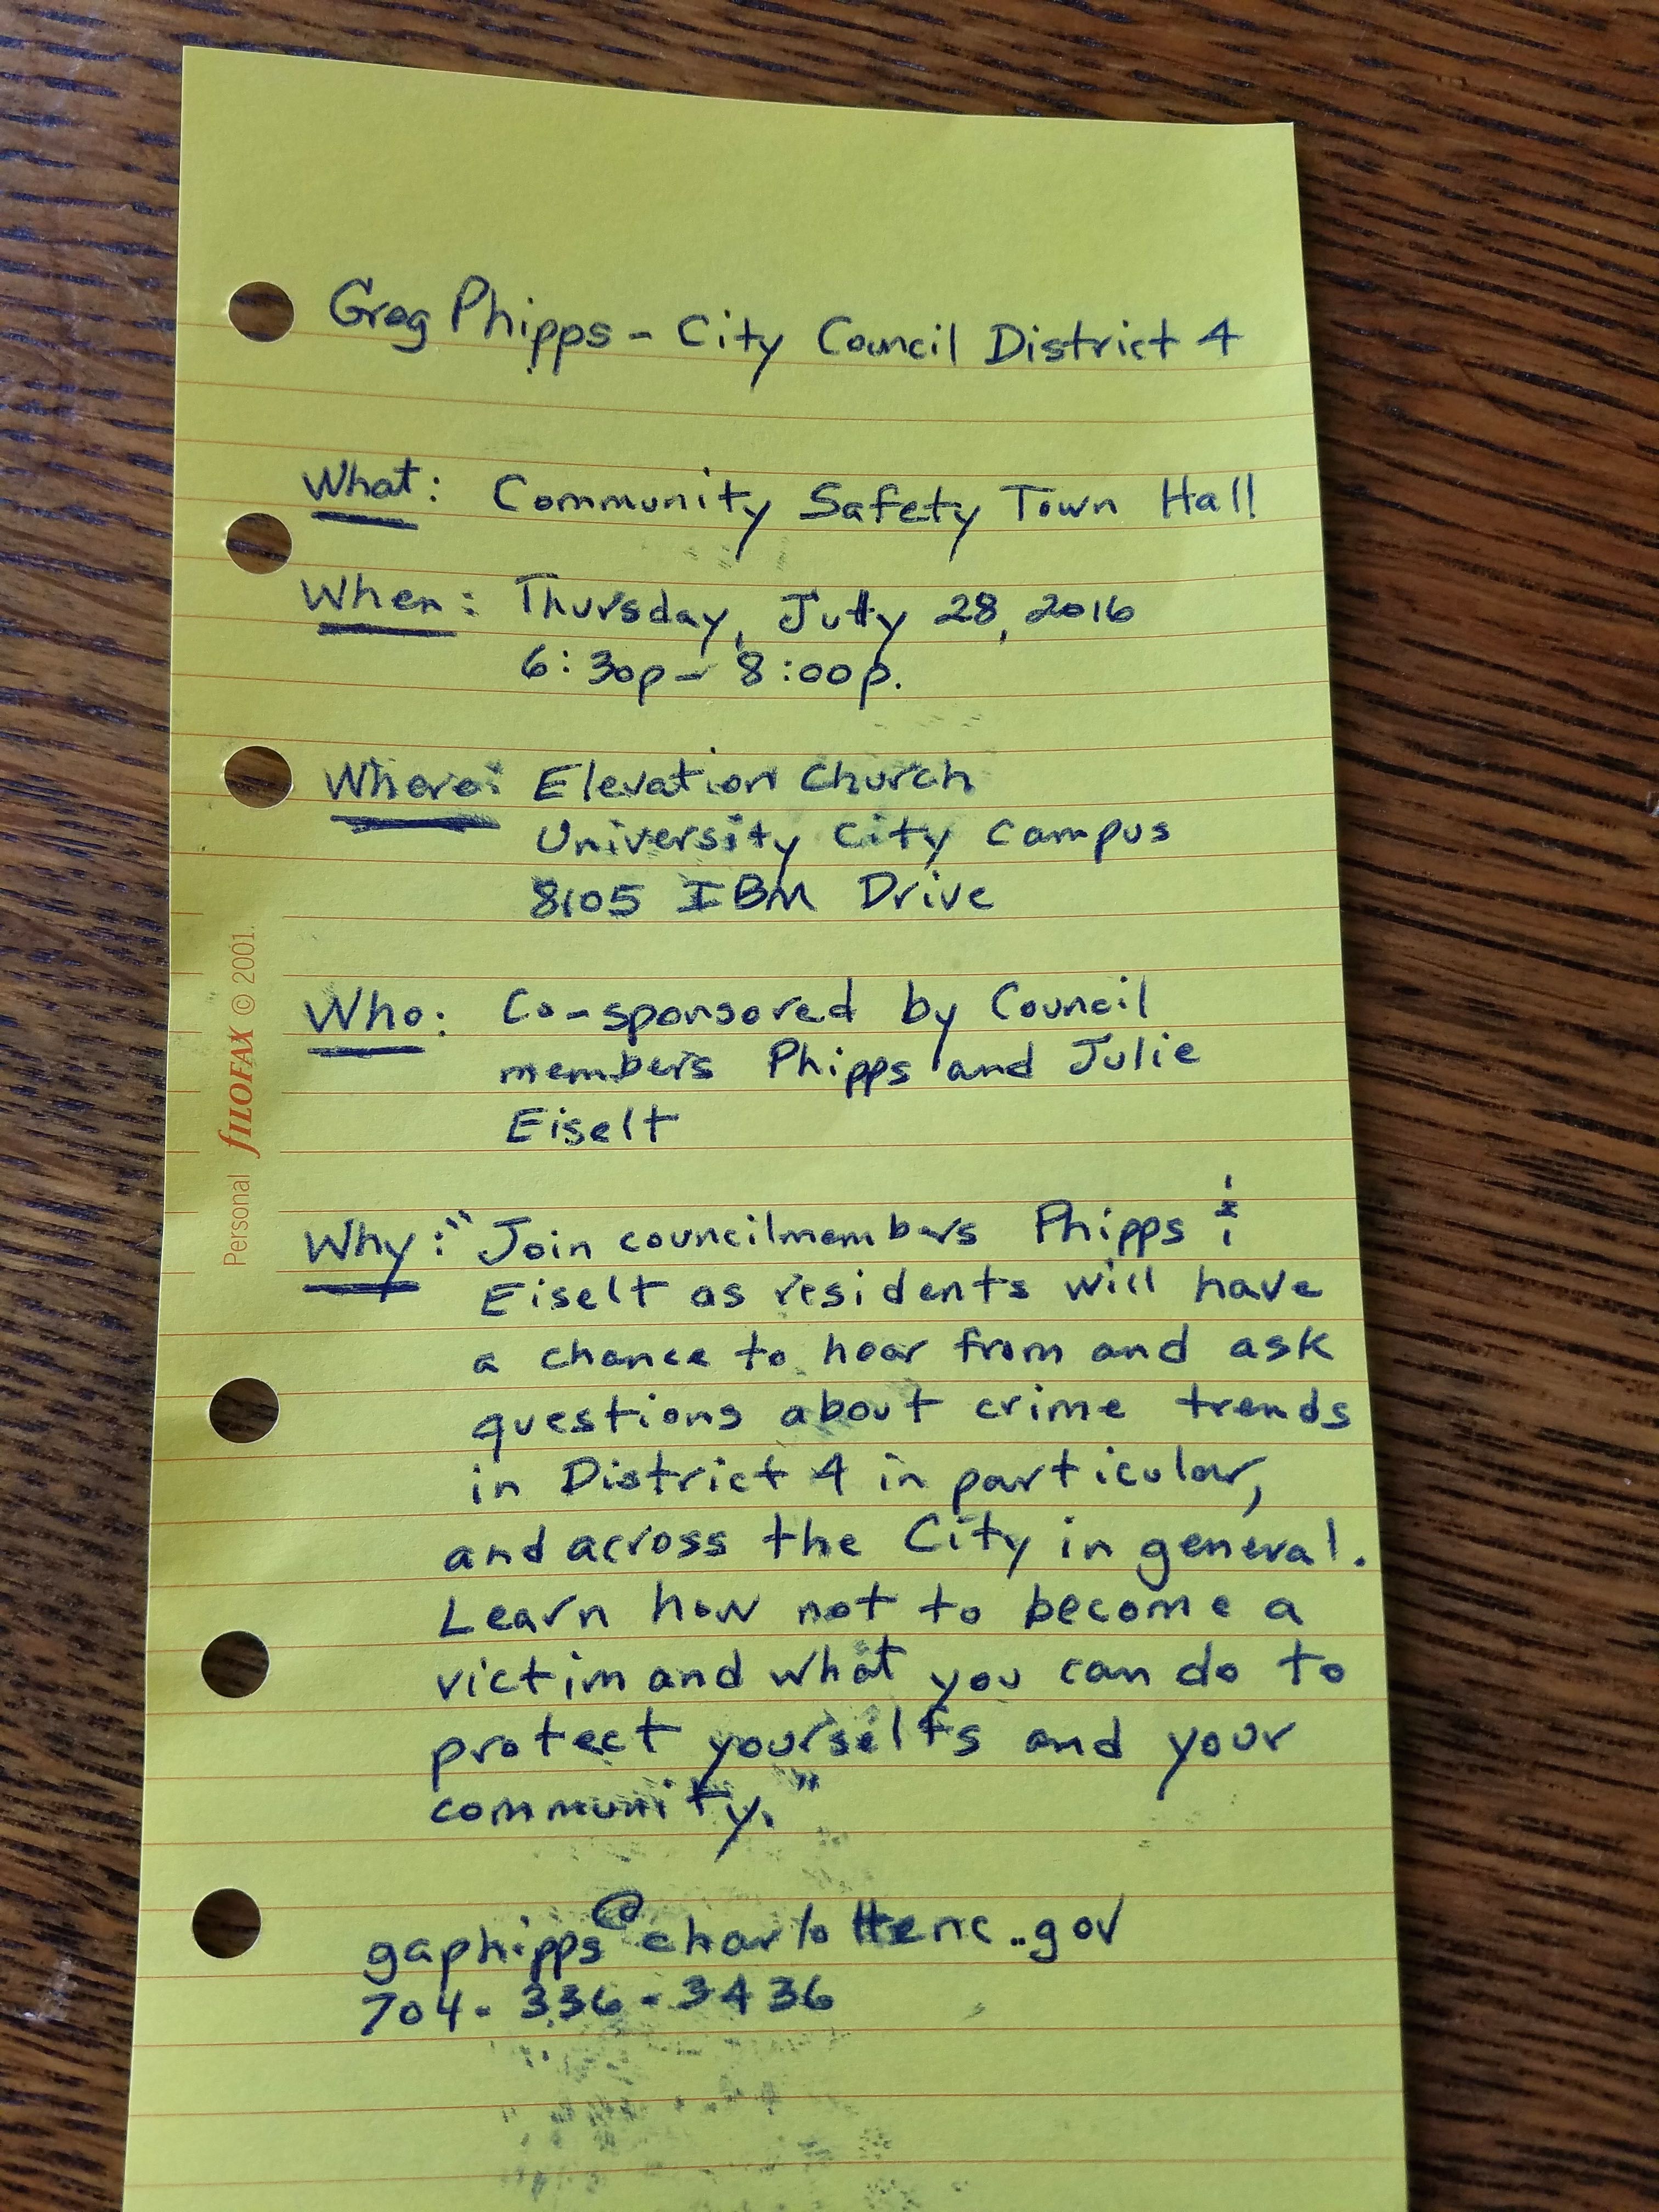 Greg Phipps - City Council District 4
What: Community Safety Town Hall
When: Thursday, July 28, 2016
6:30p - 8:00p.
Where: Elevation Church
University City Campus
8105 IBM Drive
Who: Co-sponsored by Council
members Phipps and Julie
Eiselt
Why: "Join councilmembers Phipps &
Eiselt as residents will have
a chance to hear from and ask
questions about crime trends
in District 4 in particular,
and across the City in general.
Learn how not to become a
victim and what you can do to
protect yourselfs and your
community."
gaphipps@charlottenc..gov
704-336-3436
Personal fILOFAX © 2001.